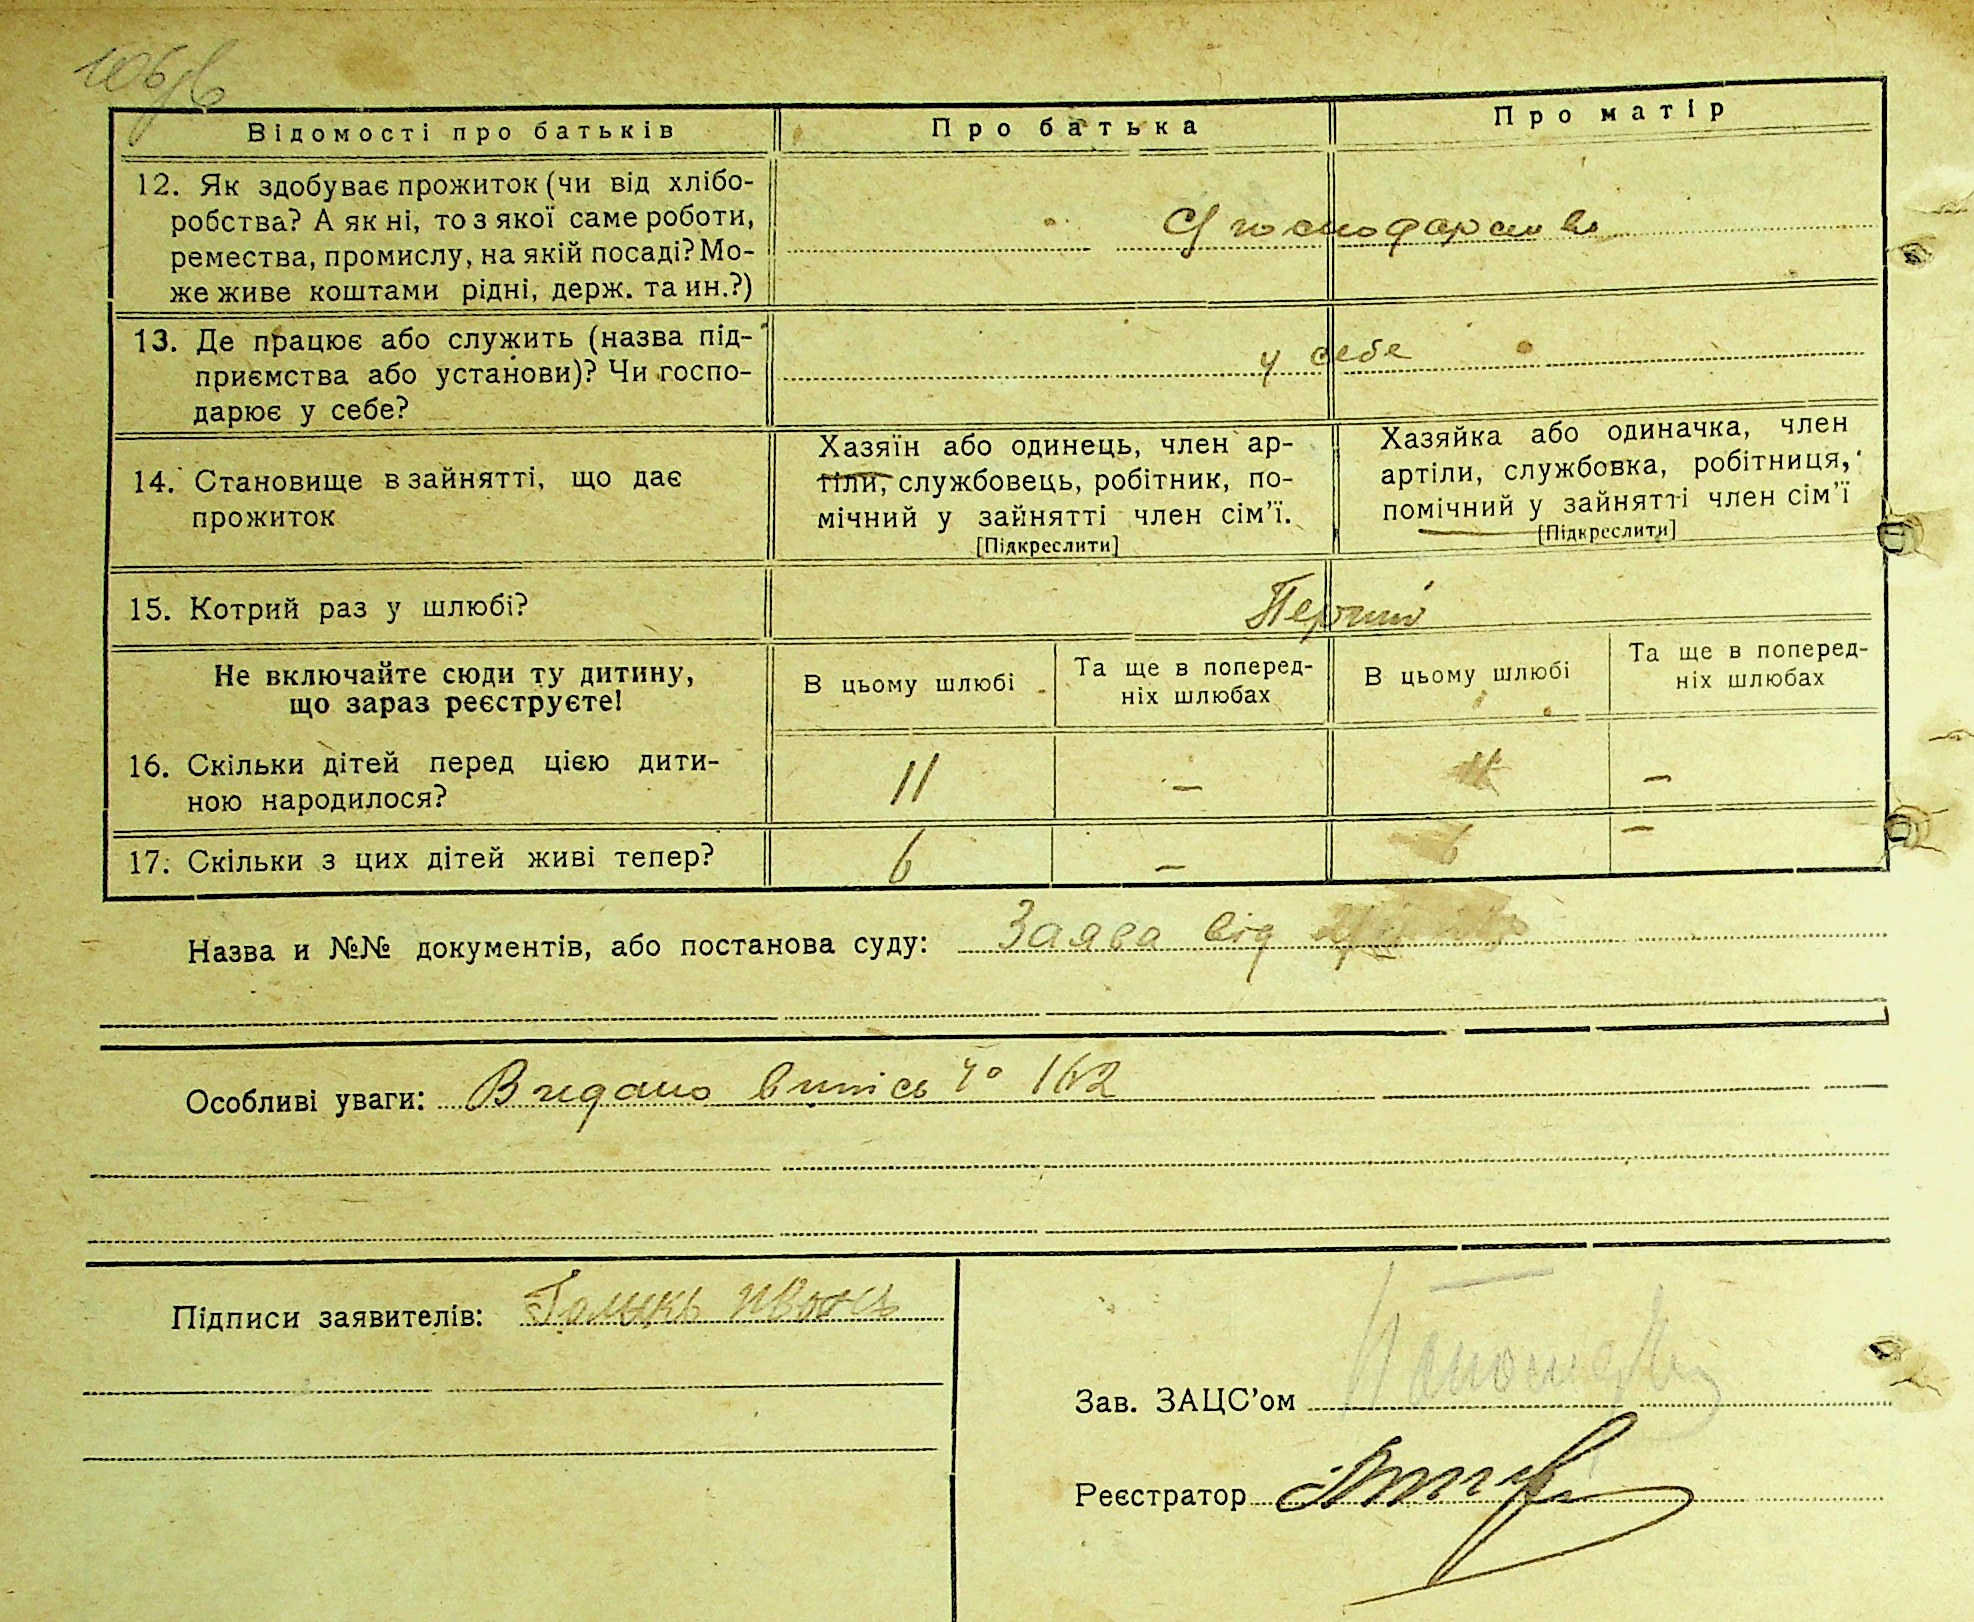 Відомості про батьків
Про батька
Про матір
12. Як здобуває прожиток (чи від хлібо-
робства? А як ні, то з якої саме роботи,
ремества, промислу, на якій посаді? Мо-
же живе коштами рідні, держ. та ин.?)
13. Де працює або служить (назва під-
приємства або установи)? Чи госпо-
дарює у себе?
у себе
14. Становище в зайнятті, що дає
прожиток
Хазяїн або одинець, член ар-
тіли, службовець, робітник, по-
мічний у зайнятті член сім’ї.
[Підкреслити]
Хазяйка або одиначка, член
артіли, службовка, робітниця,
помічний у зайнятті член сім’ї
[Підкреслити]
15. Котрий раз у шлюбі?
Перший
Не включайте сюди ту дитину,
що зараз реєструєте!
В цьому шлюбі
Та ще в поперед-
ніх шлюбах
В цьому шлюбі
Та ще в поперед-
ніх шлюбах
16. Скільки дітей перед цією дити-
ною народилося?
11 – 11 –
17. Скільки з цих дітей живі тепер?
6 – 6 –
Назва и №№ документів, або постанова суду: Заява від
Особливі уваги: Видано випись № 162
Підписи заявителів:
Зав. ЗАЦС’ом
Реєстратор